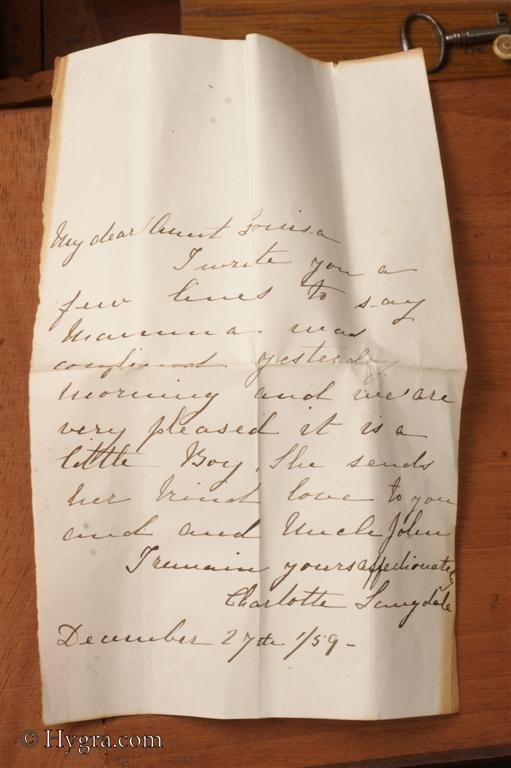 My dear Aunt Louisa
I write you a
few lines to say
Mamma was
confined yesterday
morning and we are
very pleased it is a
little Boy. She sends
her kind love to you
and and Uncle John
I remain yours affectionately
Charlotte Langdale
December 27th 1/59-
© Hygra.com